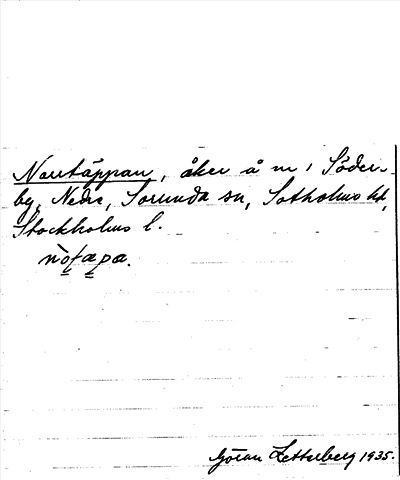 Norrtäppan, åker å nr 1 Söder-
by, Nedre, Sorunda sn, Sotholms hd,
Stockholms l.
nò̤ta̤pa.
Göran Zetterberg 1935.